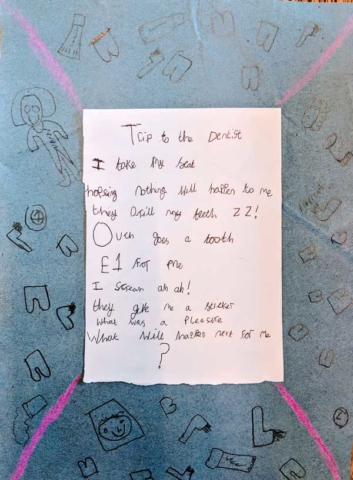 Trip to the Dentist
I take my seat
hopeing nothing will happen to me
they Drill my teeth Z Z!
Ouch goes a tooth
£1 for me
I scream ah ah!
they give me a sticker
what was a Pleasure
What Will happen next for me
?